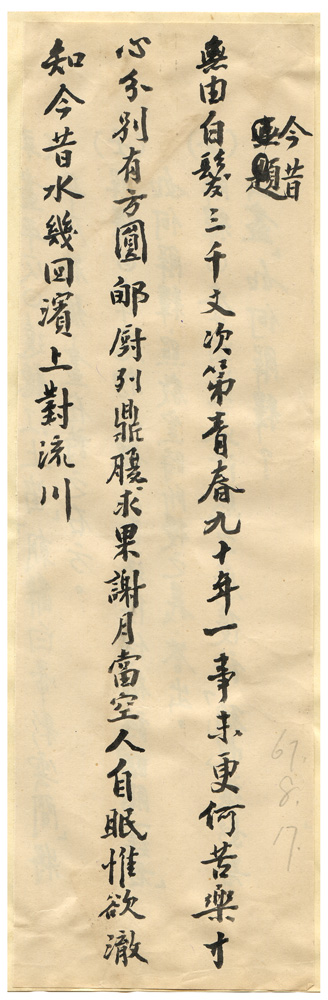 今昔
無題
無由白髮三千丈次第青春九十年一事未更何苦樂寸
心分別有方圓郇厨列鼎腹求果謝月當空人自眠惟欲澈
知今昔水幾回濱上對流川
67.
8.
17.